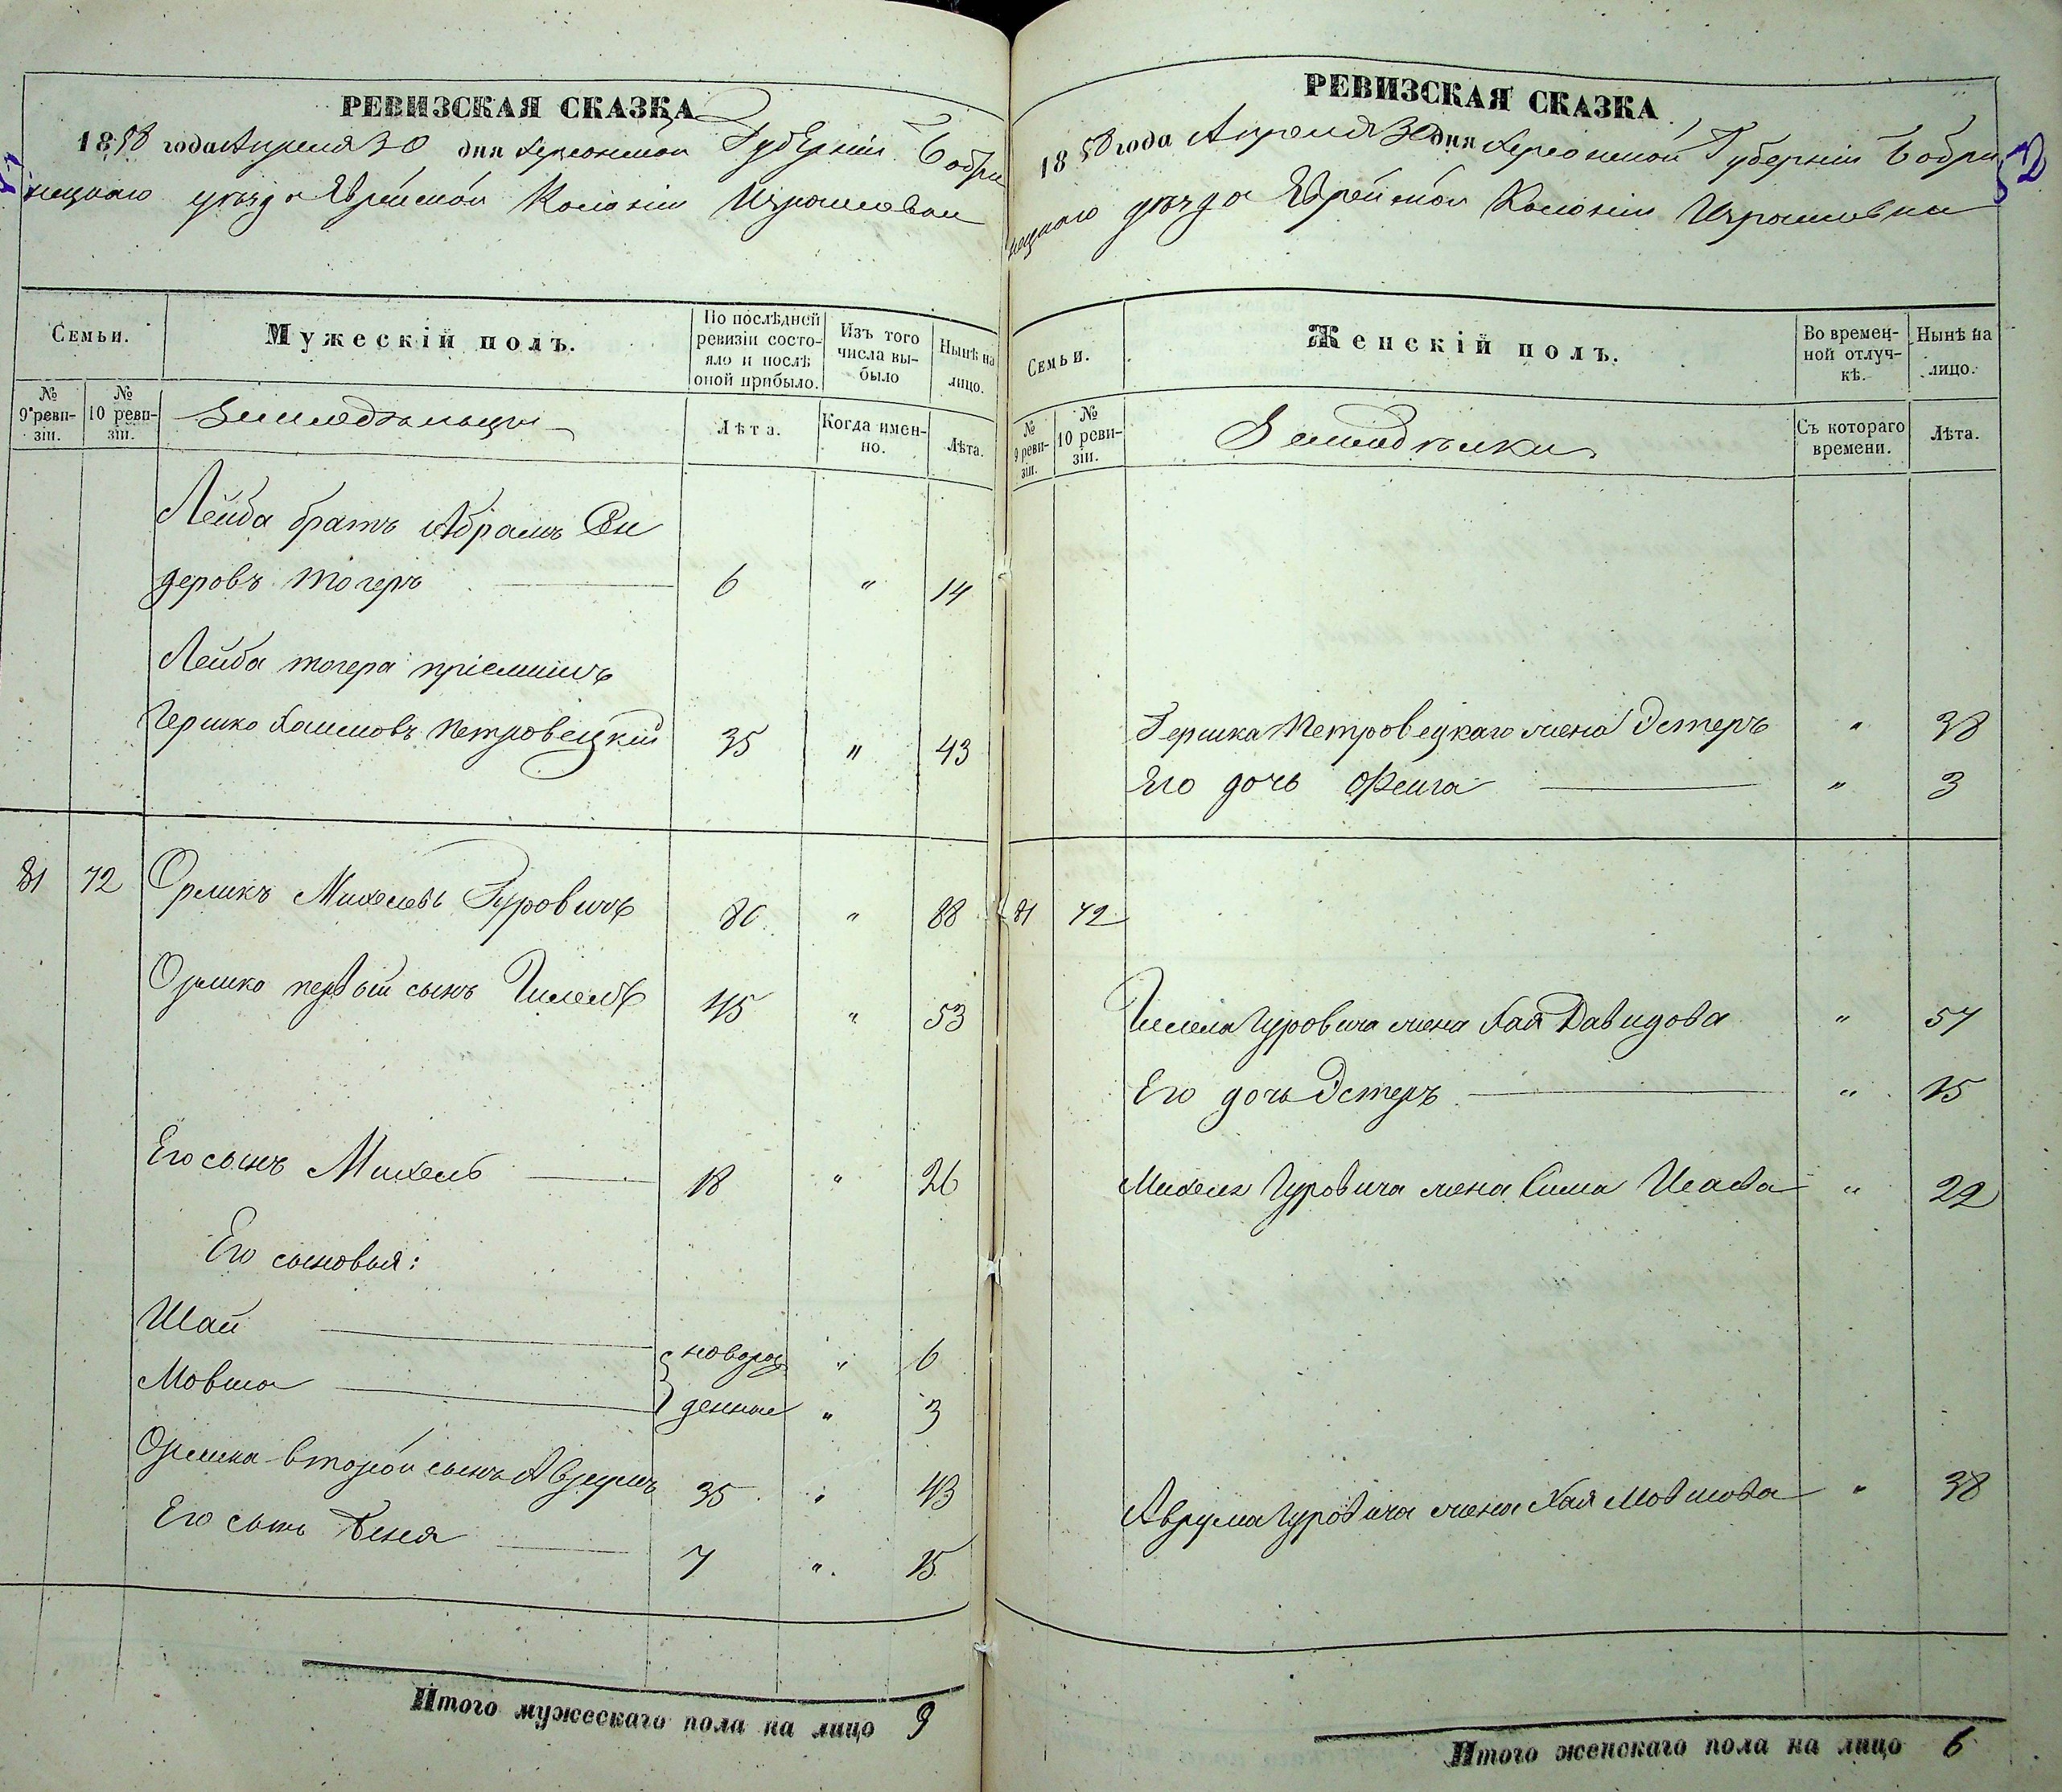 РЕВИЗСКАЯ СКАЗКА
1858 года Апреля 30 дня Херсонской Губерніи Бобри
нецкаго уѣзда Еврейской Колоніи Израилевки
Семьи.
Мужескій полъ.
По послѣдней ревизіи состояло и послѣ оной прибыло.
Изъ того числа выбыло
Нынѣ на лицо.
№ 9 ревизіи.
№ 10 ревизіи.
Земледѣльцы
Лѣта.
Когда именно.
Лѣта.
Лейба братъ Абрамъ
деровъ тогеръ 6 " 14
Лейба тогера пріемышъ
Гершко Хаимовъ Петровецкій 35 " 43
81 72 Орликъ Михелевъ Гуровичъ 80 " 88
Орлико первый сынъ Гилель 45 " 53
Его сынъ Михель 18 " 26
Его сыновья:
Шай новорож " 6
Мовша денные " 3
второй сынъ Аврумъ 35 " 43
Его сынъ Беня 7 " 15
Итого мужескаго пола на лицо 9
РЕВИЗСКАЯ СКАЗКА
1858 года Апреля 30 дня Херсонской Губерніи Бобри
нецкаго уѣзда Еврейской Колоніи Израилевки
Семьи.
Женскій полъ.
Во временной отлучкѣ.
Нынѣ на лицо.
№ 9 ревизіи.
№ 10 ревизіи.
Земледѣлки
Съ котораго времени.
Лѣта.
Гершка Петровецкаго жена Эстеръ " 38
Его дочь Фейга " 3
81 72
Гилеля Гуровича жена Хая Давидова " 54
Его дочь Эстеръ " 15
Михеля Гуровича жена Сима " 22
Аврума Гуровича жена Хая Мовшова " 38
Итого женскаго пола на лицо 6